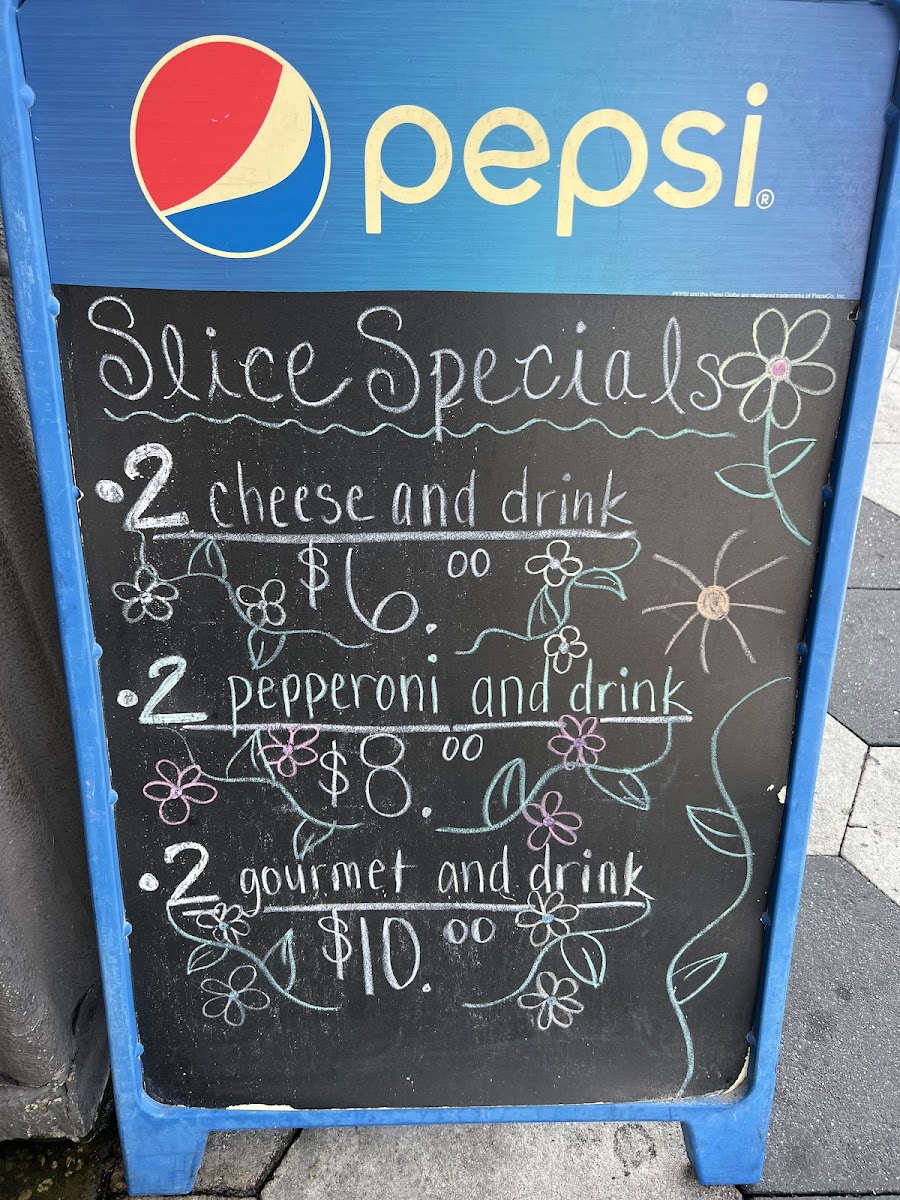 pepsi®
PEPSI and the Pepsi Globe are registered trademarks of PepsiCo, Inc.
Slice Specials
·2 cheese and drink
$6.00
·2 pepperoni and drink
$8.00
·2 gourmet and drink
$10.00